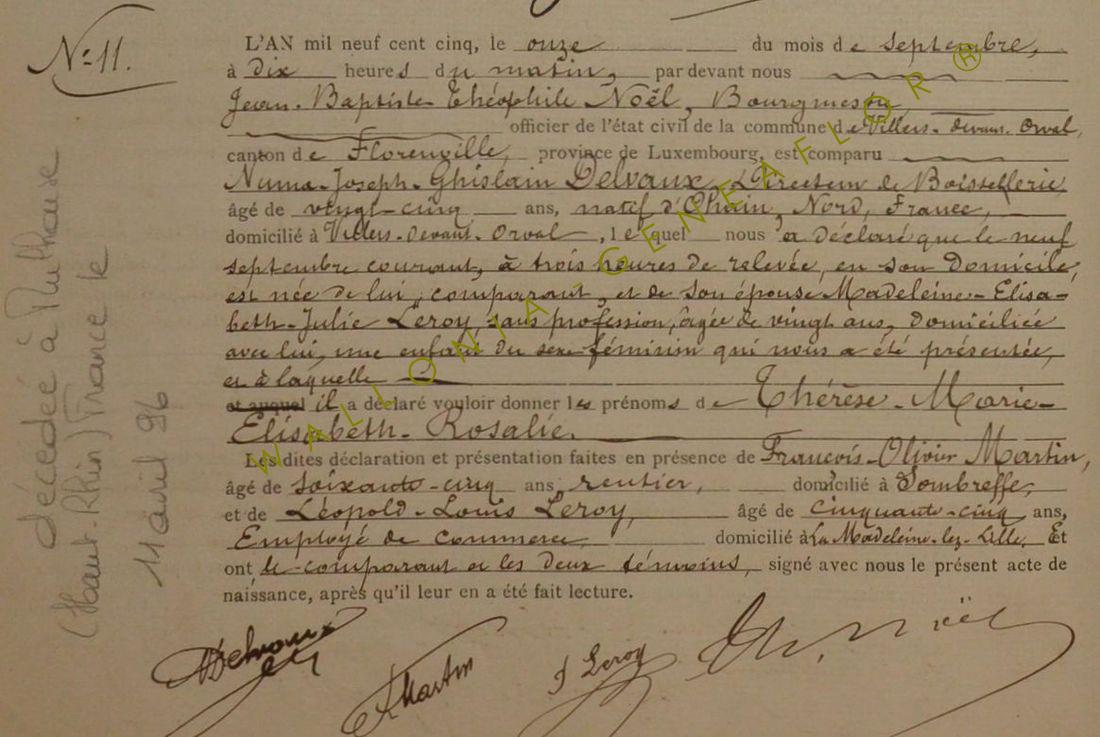 N° 11.
L'AN mil neuf cent cinq, le onze du mois de septembre,
à dix heures du matin, par devant nous
Jean-Baptiste Théophile Noël, Bourgmestre
officier de l'état civil de la commune de Villers-devant-Orval,
canton de Florenville, province de Luxembourg, est comparu
Numa-Joseph-Ghislain Delvaux, Directeur de Boissellerie,
âgé de vingt-cinq ans, natif d'Ohain, Nord, France,
domicilié à Villers-devant-Orval, lequel nous a déclaré que le neuf
septembre courant, à trois heures de relevée, en son domicile,
est née de lui, comparant, et de son épouse Madeleine-Elisa-
beth-Julie Leroy, sans profession, âgée de vingt ans, domiciliée
avec lui, une enfant du sexe féminin qui nous a été présentée,
et à laquelle
et auquel il a déclaré vouloir donner les prénoms de Thérèse-Marie-
Elisabeth-Rosalie.
Les dites déclaration et présentation faites en présence de François-Olivier Martin,
âgé de soixante-cinq ans, rentier, domicilié à Sombreffe,
et de Léopold-Louis Leroy, âgé de cinquante-cinq ans,
Employé de commerce, domicilié à La Madeleine-lez-Lille. Et
ont le comparant et les deux témoins, signé avec nous le présent acte de
naissance, après qu'il leur en a été fait lecture.
NDelvaux
Martin
Leroy
Th. Noël
décédée à Mulhouse
(Haut-Rhin) France le
11 avril 96
WALLONIA-GENEAFLOR®